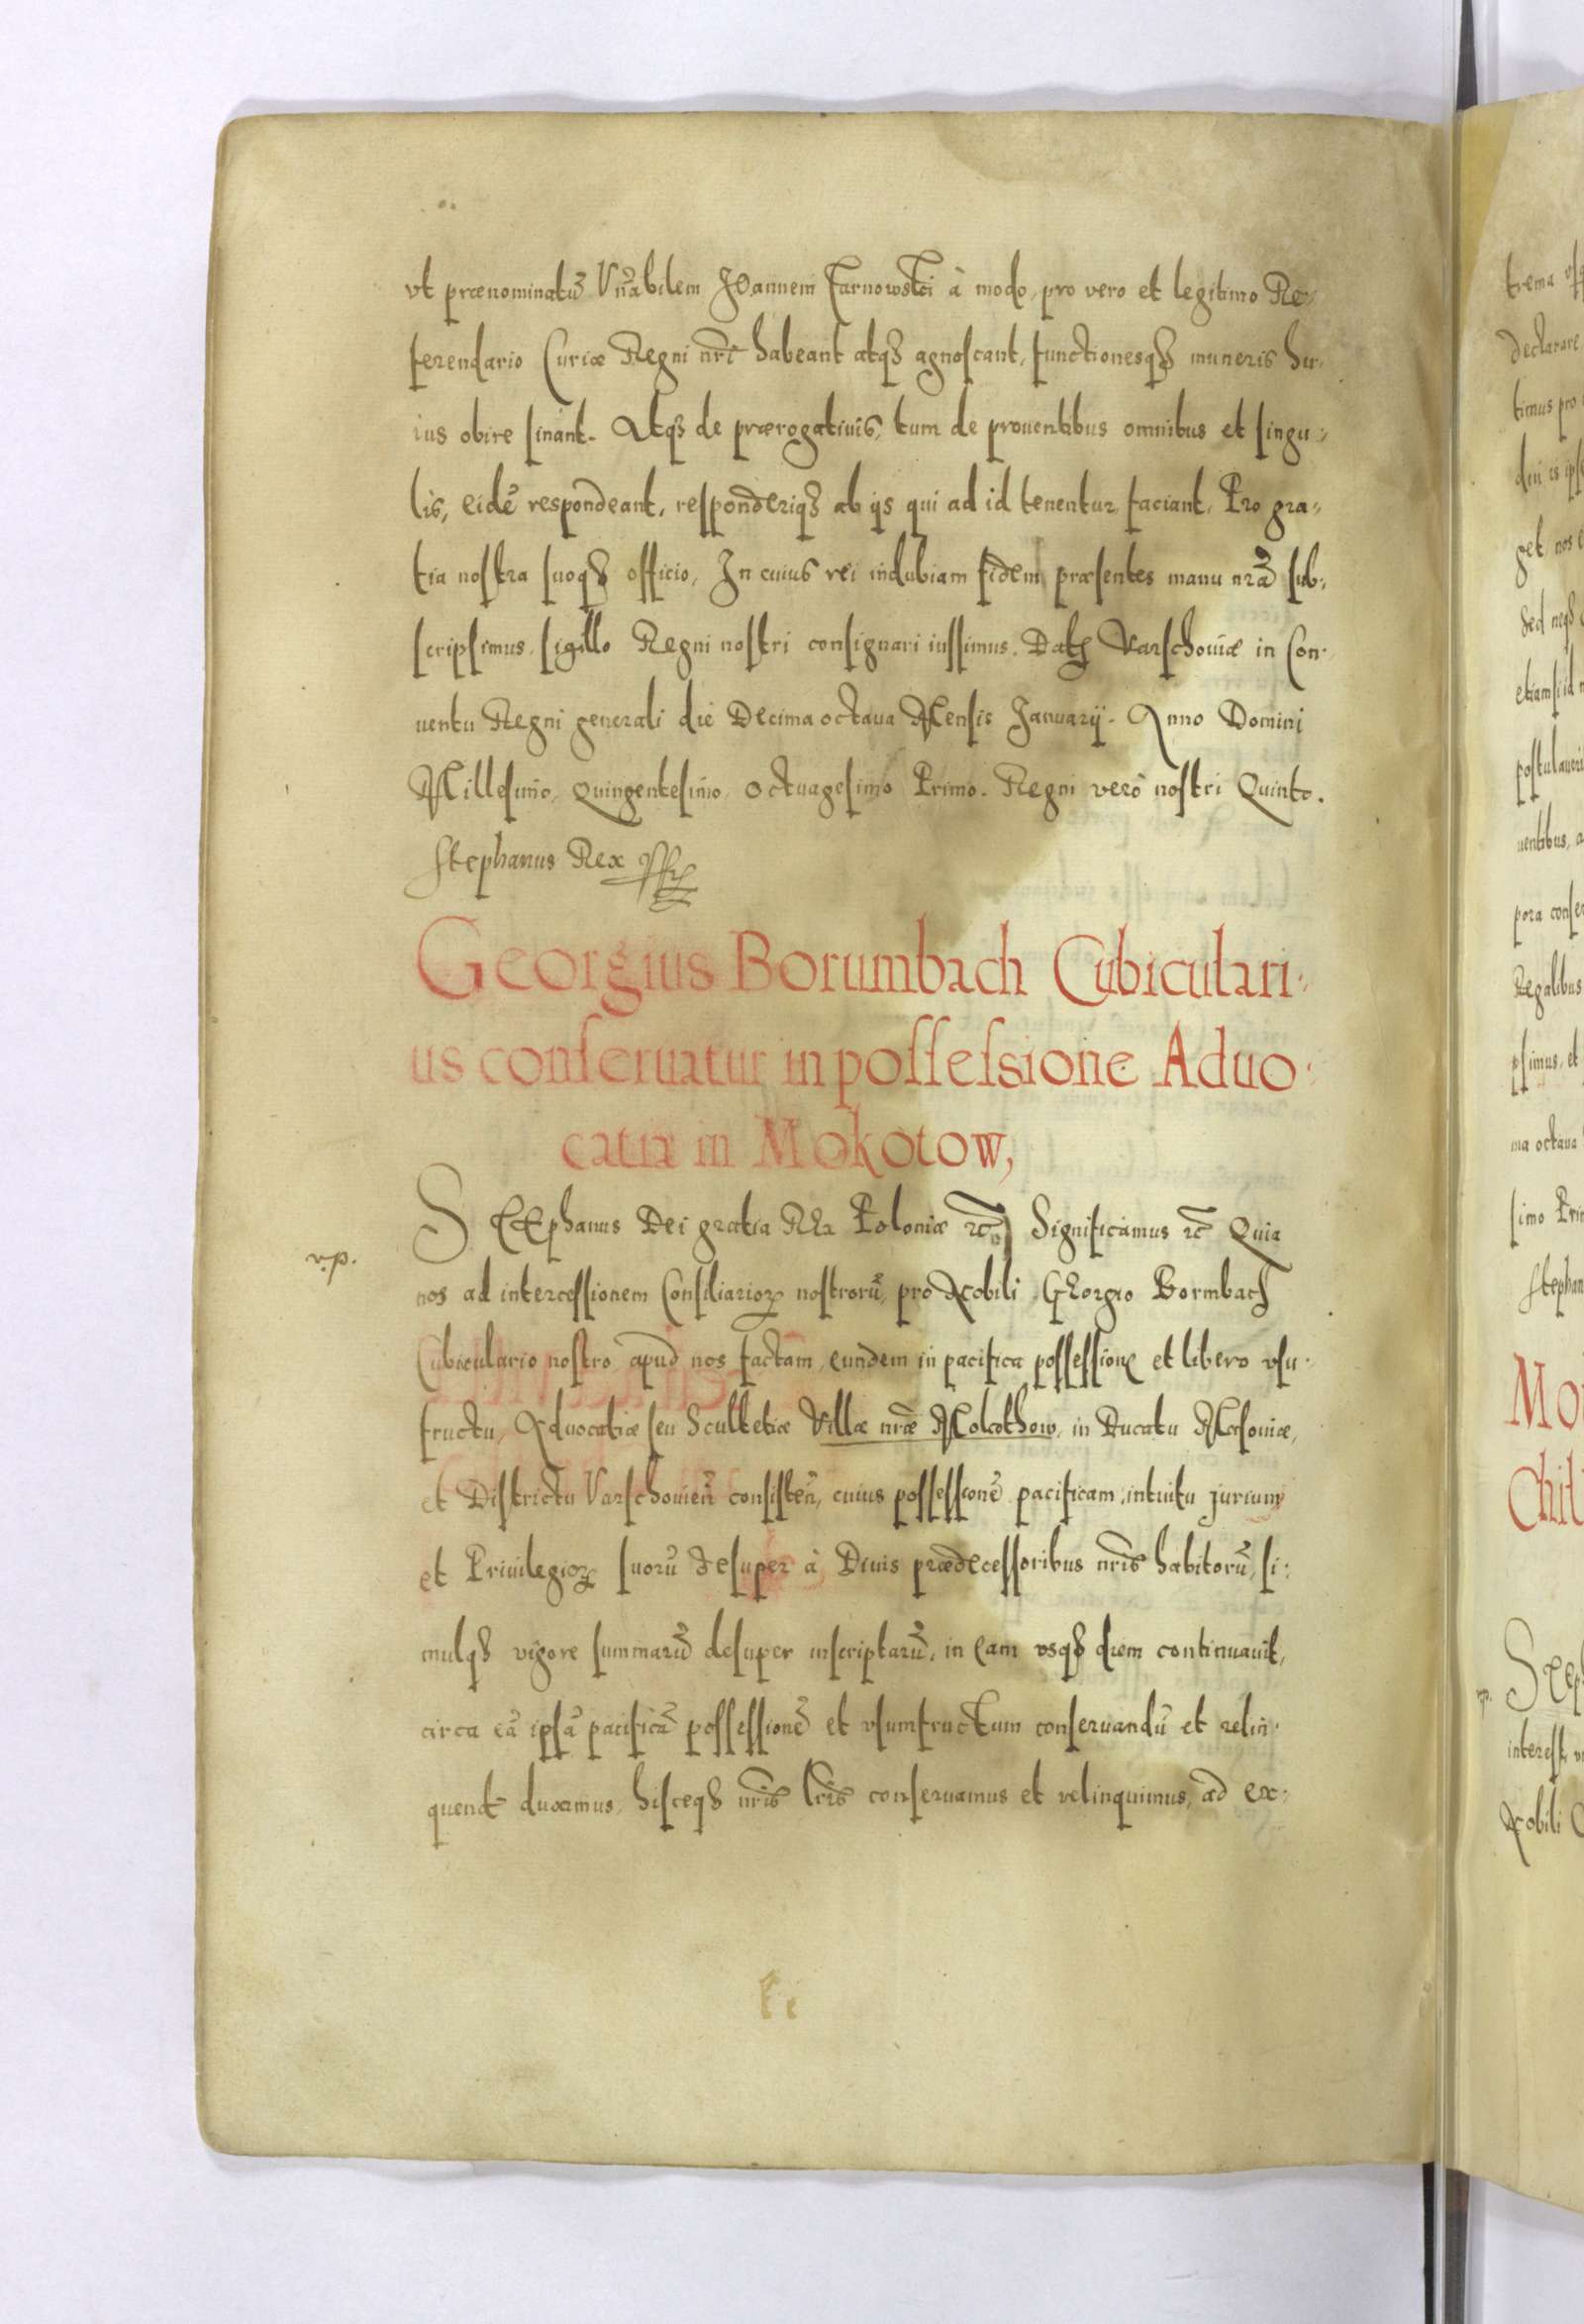 vt prænominatũ Vñabilem Joannem Tarnowski à modo, pro vero et legitimo Re-
ferendario Curiæ Regni nrĩ habeant atqȝ agnoscant, functionesqȝ muneris hu-
ius obire sinant. Atqȝ de prærogatiuis, tum de prouentibus omnibus et singu-
lis, eidẽ respondeant, responderiqȝ ab ijs qui ad id tenentur faciant. Pro gra-
tia nostra suoqȝ officio. In cuius rei indubiam fidem præsentes manu nrã sub-
scripsimus, sigillo Regni nostri consignari iussimus. Datȝ Varschouiæ in Con-
uentu Regni generali die Decima octaua Mensis Januarij. Anno Domini
Millesimo, quingentesimo, octuagesimo Primo. Regni verò nostri Quinto.
Stephanus Rex
Georgius Borumbach Cubiculari-
us conseruatur in possessione Aduo-
catiæ in Mokotow,
STEphanus Dei gratia REx Poloniæ ꝛc̃ Significamus ꝛc̃ Quia
v.p.
nos ad intercessionem Consiliarioꝝ nostrorũ, pro Nobili GEorgio Bormbach
Cubiculario nostro apud nos factam, eundem in pacifica possessione et libero vsu-
fructu, Aduocatiæ seu Scultetiæ Villæ nræ̃ Mokothow, in Ducatu Masouiæ,
et Districtu Varschouieñ consisteñ, cuius possessionẽ pacificam, intuitu jurium
et Priuilegioꝝ suorũ desuper à Diuis prædecessoribus nrĩs habitorũ, si-
mulqȝ vigore summarũ desuper inscriptarũ, in eam vsqȝ diem continuauit,
circa eã ipsã pacificã possessionẽ et vsumfructum conseruandũ et relin-
quend duximus, hisceqȝ nrĩs lrĩs conseruamus et relinquimus, ad ex-
trema
declarare
timus pro
get nos
etiamsi id
pora
Regalibus
psimus, et
ma octaua
simo Pri
Stephan
Mo
Chil
Step
interest
Nobili